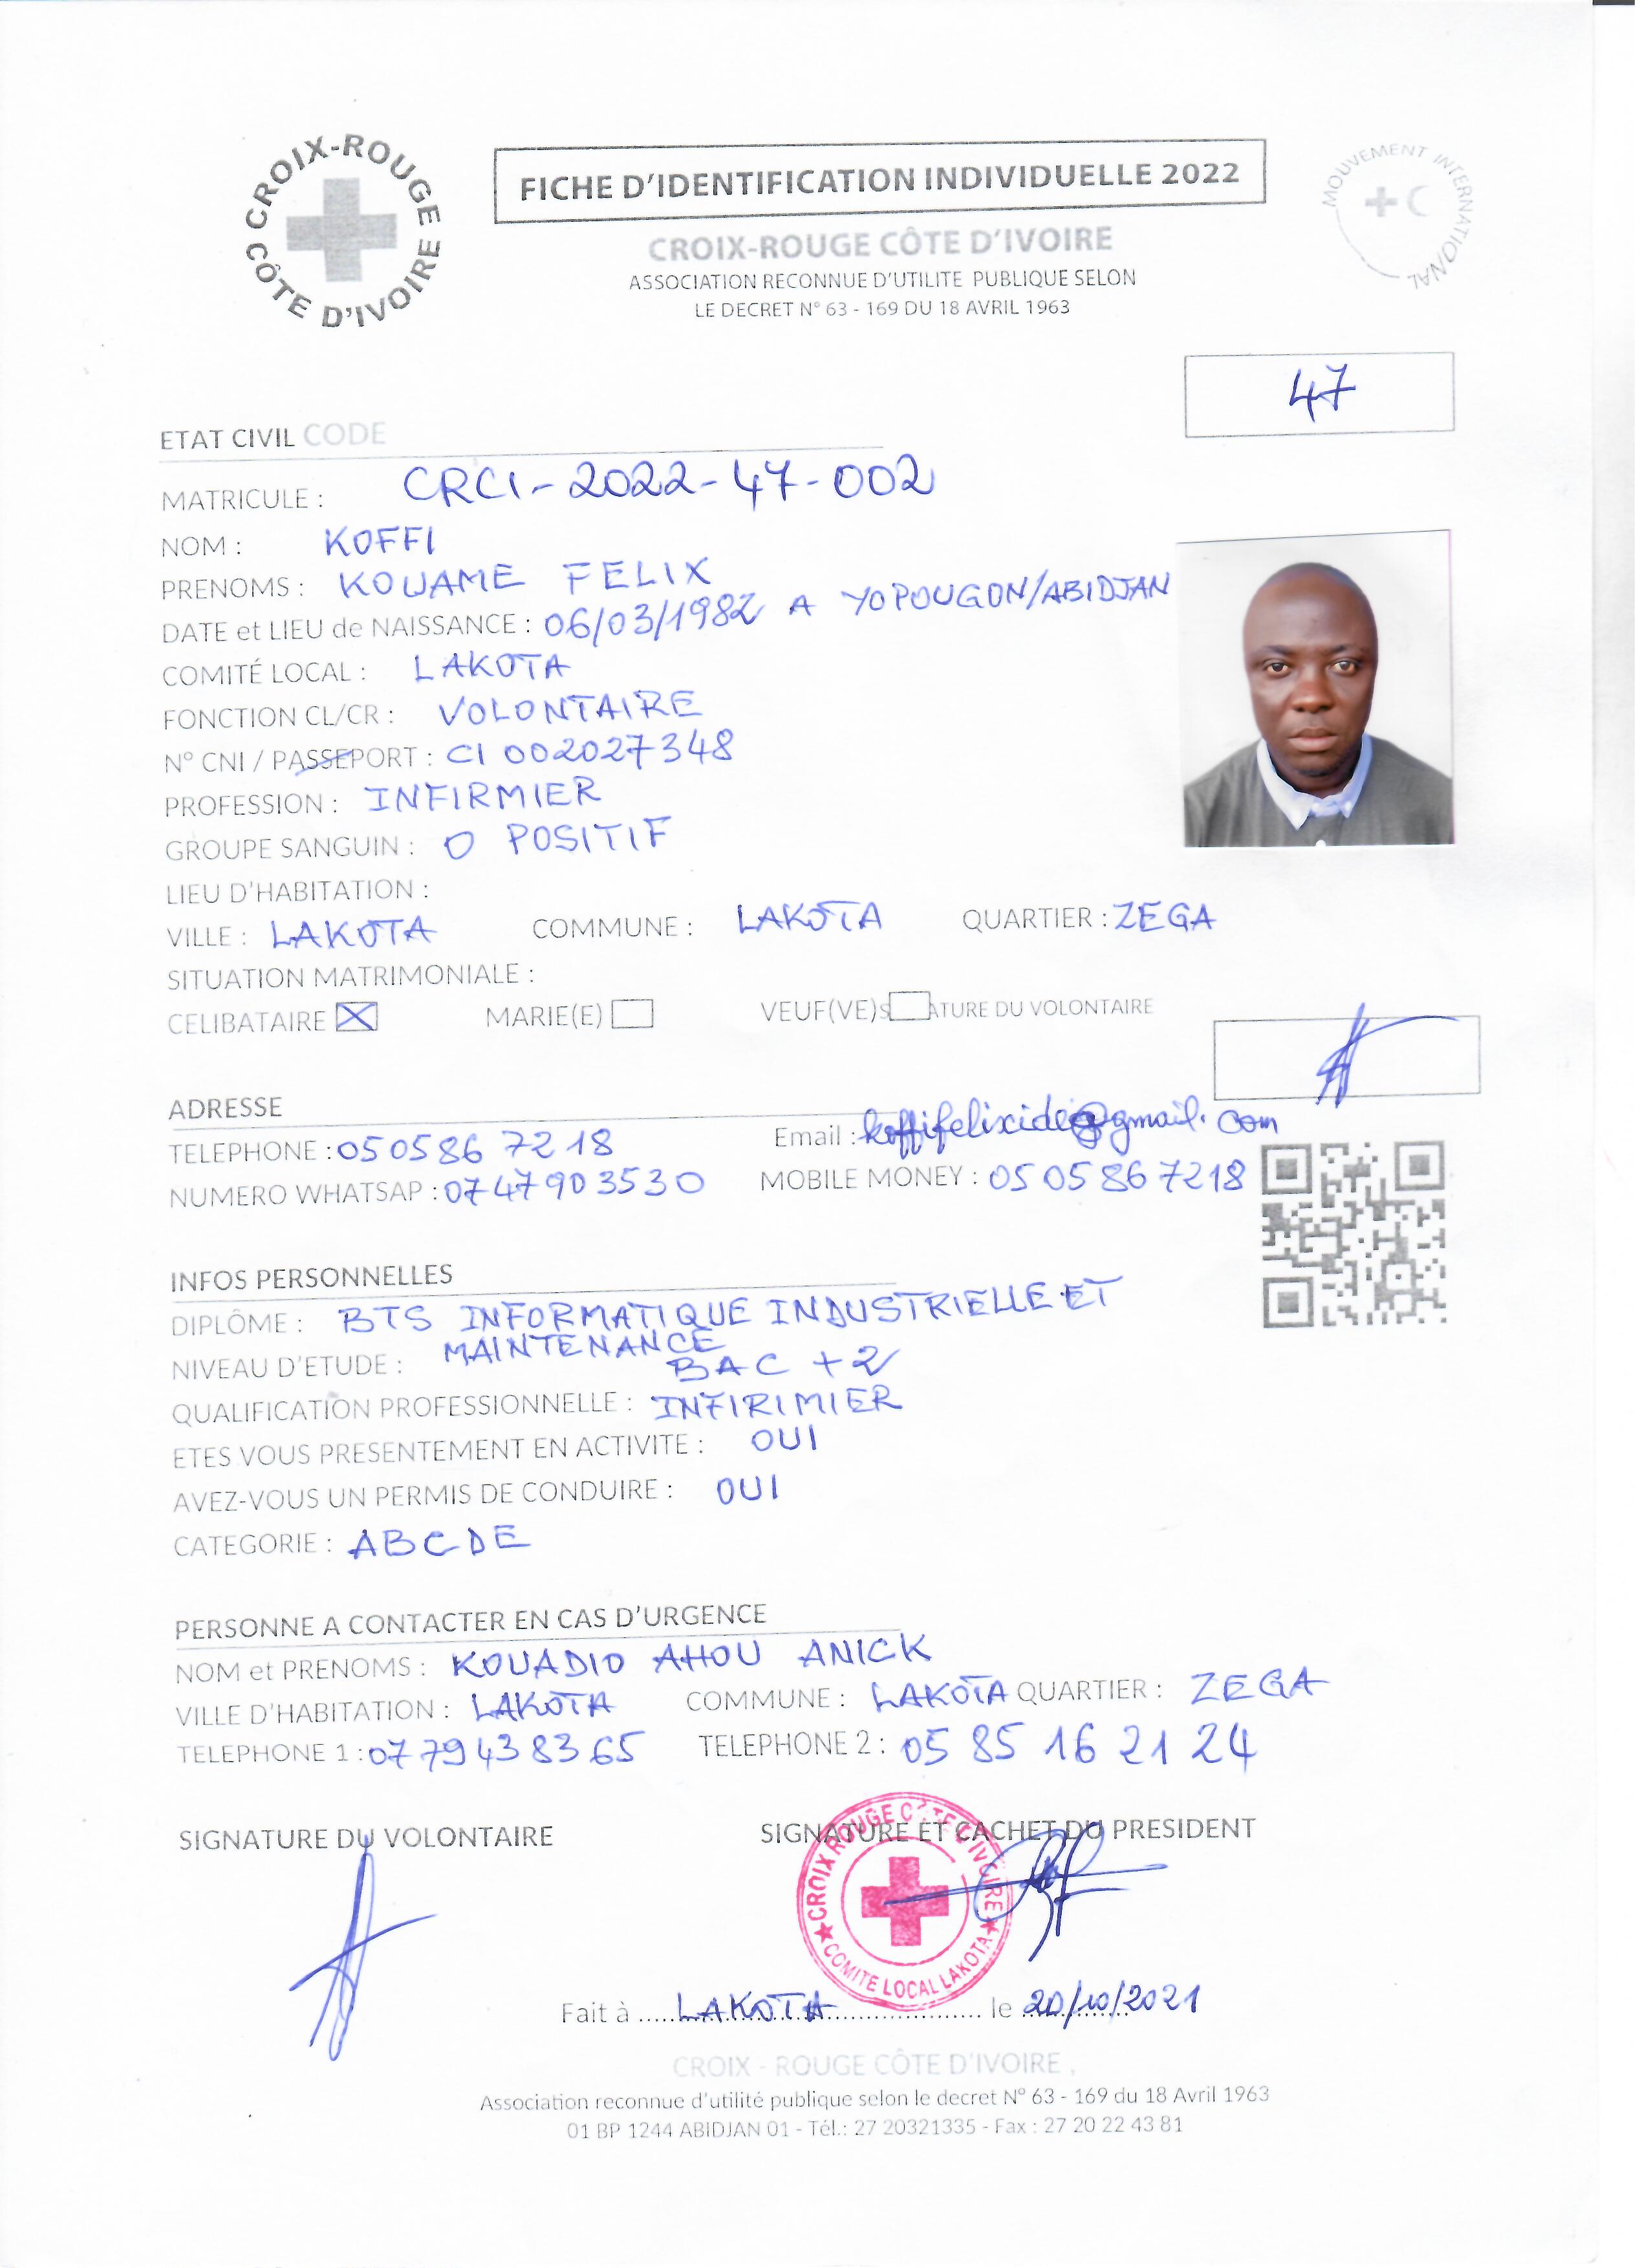 CROIX-ROUGE CÔTE D'IVOIRE
FICHE D'IDENTIFICATION INDIVIDUELLE 2022
MOUVEMENT INTERNATIONAL
CROIX-ROUGE CÔTE D'IVOIRE
ASSOCIATION RECONNUE D'UTILITE PUBLIQUE SELON
LE DECRET N° 63 - 169 DU 18 AVRIL 1963
47
ETAT CIVIL CODE
MATRICULE : CRCI-2022-47-002
NOM : KOFFI
PRENOMS : KOUAME FELIX
DATE et LIEU de NAISSANCE : 06/03/1982 A YOPOUGON/ABIDJAN
COMITÉ LOCAL : LAKOTA
FONCTION CL/CR : VOLONTAIRE
N° CNI / PASSEPORT : CI 002027348
PROFESSION : INFIRMIER
GROUPE SANGUIN : O POSITIF
LIEU D'HABITATION :
VILLE : LAKOTA COMMUNE : LAKOTA QUARTIER : ZEGA
SITUATION MATRIMONIALE :
CELIBATAIRE MARIE(E) VEUF(VE) S ATURE DU VOLONTAIRE
ADRESSE
TELEPHONE : 05 05 86 72 18 Email : koffifelixcide@gmail.com
NUMERO WHATSAP : 07 47 90 35 30 MOBILE MONEY : 05 05 86 7218
INFOS PERSONNELLES
DIPLÔME : BTS INFORMATIQUE INDUSTRIELLE ET
MAINTENANCE
NIVEAU D'ETUDE : BAC +2
QUALIFICATION PROFESSIONNELLE : INFIRIMIER
ETES VOUS PRESENTEMENT EN ACTIVITE : OUI
AVEZ-VOUS UN PERMIS DE CONDUIRE : OUI
CATEGORIE : ABCDE
PERSONNE A CONTACTER EN CAS D'URGENCE
NOM et PRENOMS : KOUADIO AHOU ANICK
VILLE D'HABITATION : LAKOTA COMMUNE : LAKOTA QUARTIER : ZEGA
TELEPHONE 1 : 07 79 43 83 65 TELEPHONE 2 : 05 85 16 21 24
SIGNATURE DU VOLONTAIRE SIGNATURE ET CACHET DU PRESIDENT
CROIX ROUGE CÔTE D'IVOIRE
COMITE LOCAL LAKOTA
Fait à LAKOTA le 20/10/2021
CROIX - ROUGE CÔTE D'IVOIRE ,
Association reconnue d'utilité publique selon le decret N° 63 - 169 du 18 Avril 1963
01 BP 1244 ABIDJAN 01 - Tél.: 27 20321335 - Fax : 27 20 22 43 81